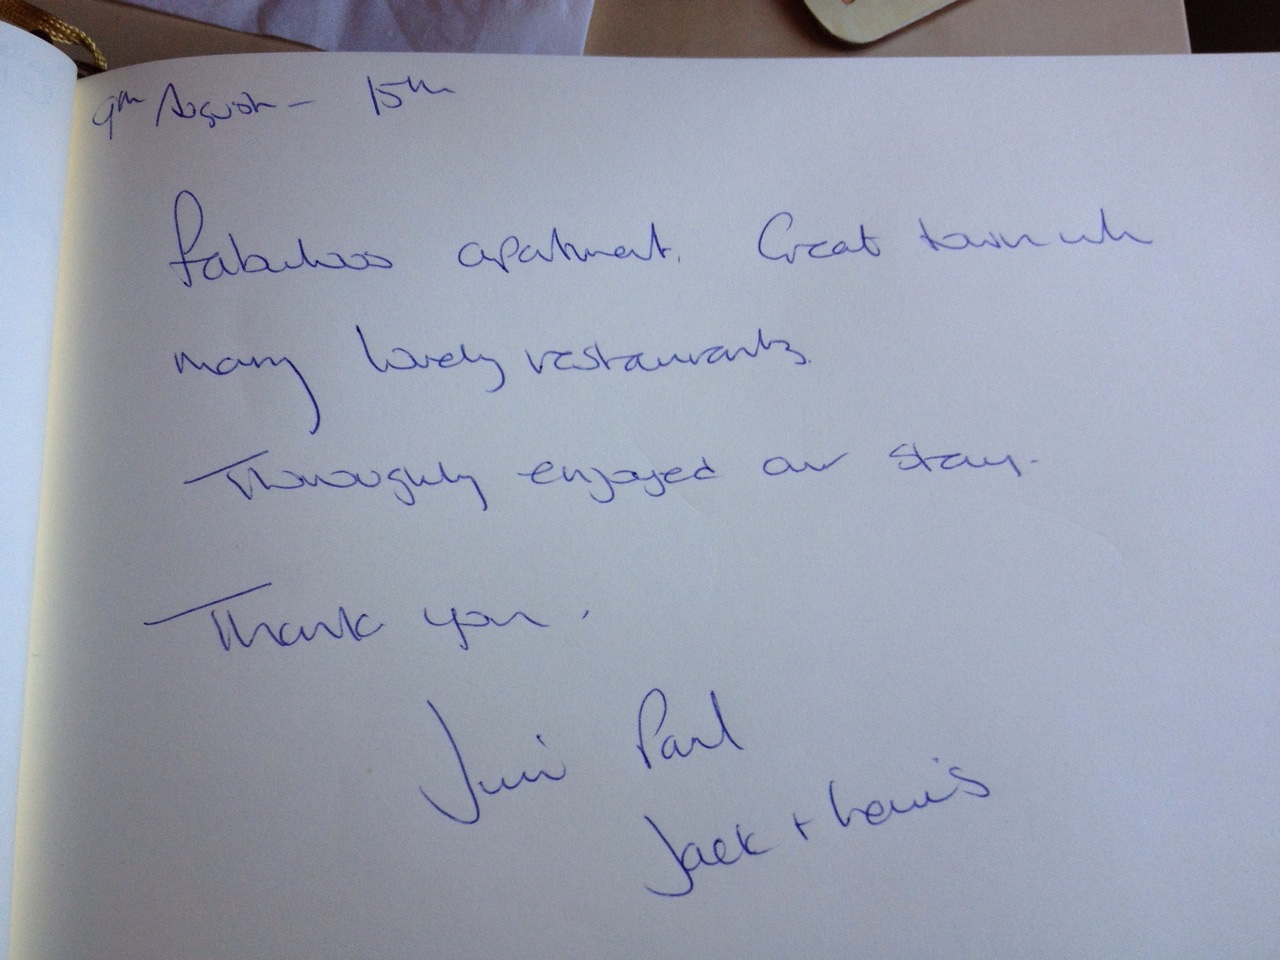 9th August – 15th
Fabulous apartment. Great town with
many lovely restaurants.
Thoroughly enjoyed our stay.
Thank you.
Paul
Jack + Lewis